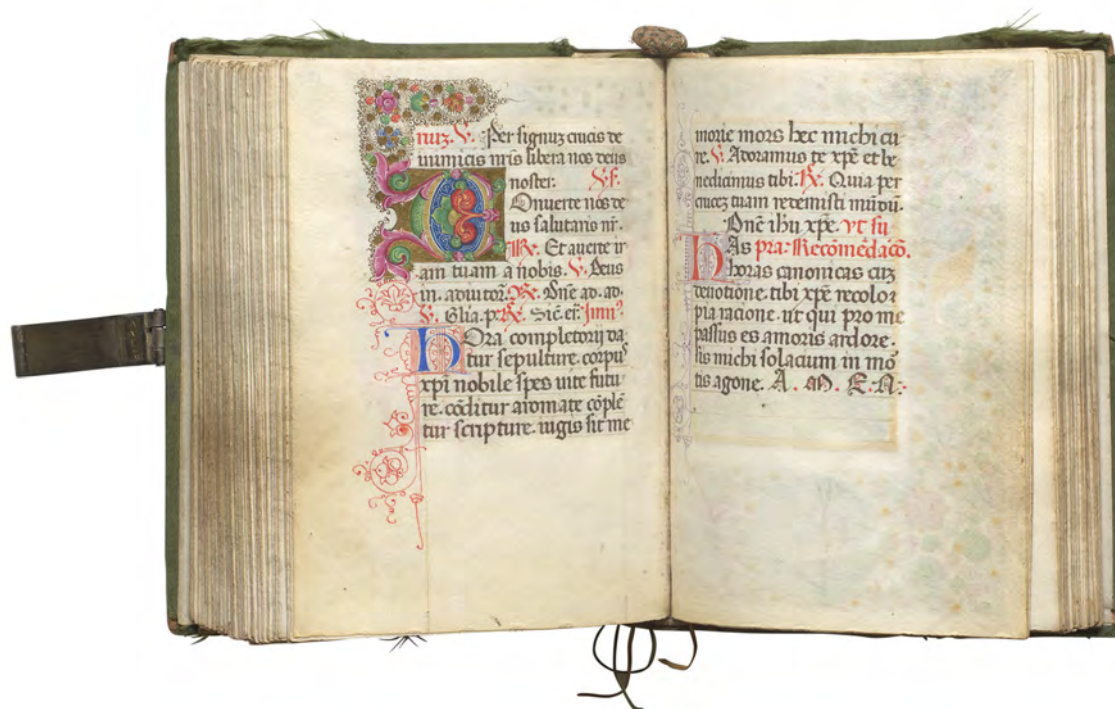 nuz. V. Per signuz crucis de
inimicis nr̄is libera nos deus
noster: V. f.
COnuerte nos de
us salutaris nr̄.
R. Et auerte ir
am tuam a nobis. V. Deus
in. adiutor̄. R. Dn̄e ad. ad.
V. Gl̄ia. p. R. Sic̄. er̄. Jmn⁹
HOra completorij da
tur sepulture. corpus
xp̄i nobile spes uite futu
re. cōditur aromate cōplē
tur scripture. iugis sit me
morie mors hec michi cu
re. V. Adoramus te xp̄e et be
nedicimus tibi. R. Quia per
crucez tuam redemisti mūdū.
Dn̄e ih̄u xp̄e. vt su
HAs pra: Recōmēdacō.
horas canonicas cuz
deuotione. tibi xp̄e recolo
pia racione. ut qui pro me
passus es amoris ardore.
sis michi solacium in mō
tis agone. A. M. E. N: